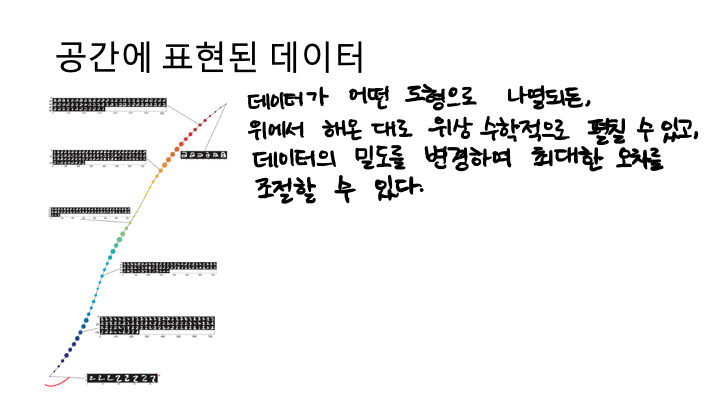 공간에 표현된 데이터
데이터가 어떤 도형으로 나열되든,
위에서 해온 대로 위상 수학적으로 펼칠 수 있고,
데이터의 밀도를 변경하여 최대한 오차를
조절할 수 있다.